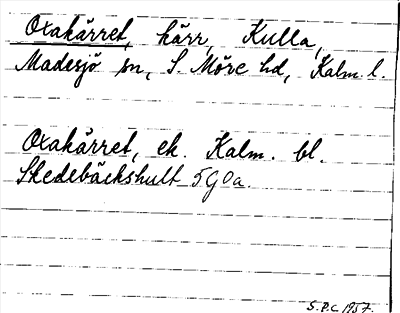 Oxakärret, kärr, Kulla,
Madesjö sn, S. Möre hd, Kalm. l.
Oxakärret, ek. Kalm. bl.
Skedebäckshult 5G0a.
S.P.C. 1957.